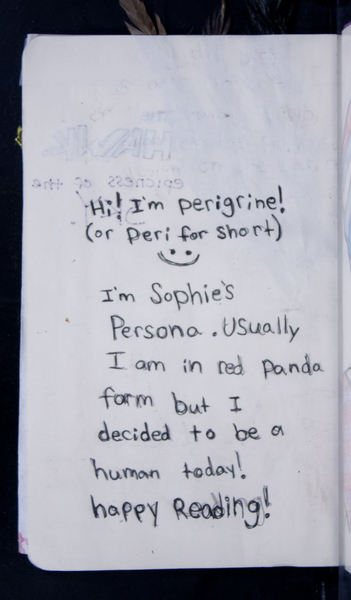 Hi! I'm perigrine!
(or Peri for short)
I'm Sophie's
Persona. Usually
I am in red panda
form but I
decided to be a
human today!
happy Reading!
epicness of the